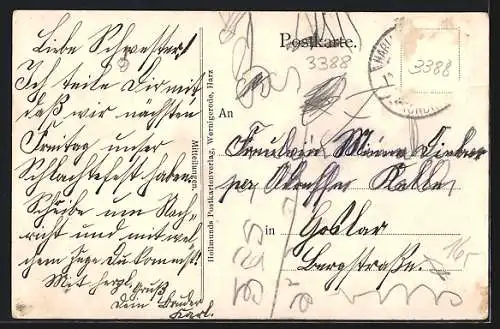 Liebe Schwester!
Ich teile Dir mit
daß wir nächsten
Freitag unser
Schlachtfest haben.
Schreibe um Nach-
richt und mit wel-
chem Zuge Du kommst!
Mit herzl. Gruß
Dein Bruder
Karl.
Mitteilungen.
Hollmunds Postkartenverlag, Wernigerode, Harz
Postkarte.
3388
3388
An
Fräulein Minna
per
in Goslar
Bergstraße
16,-